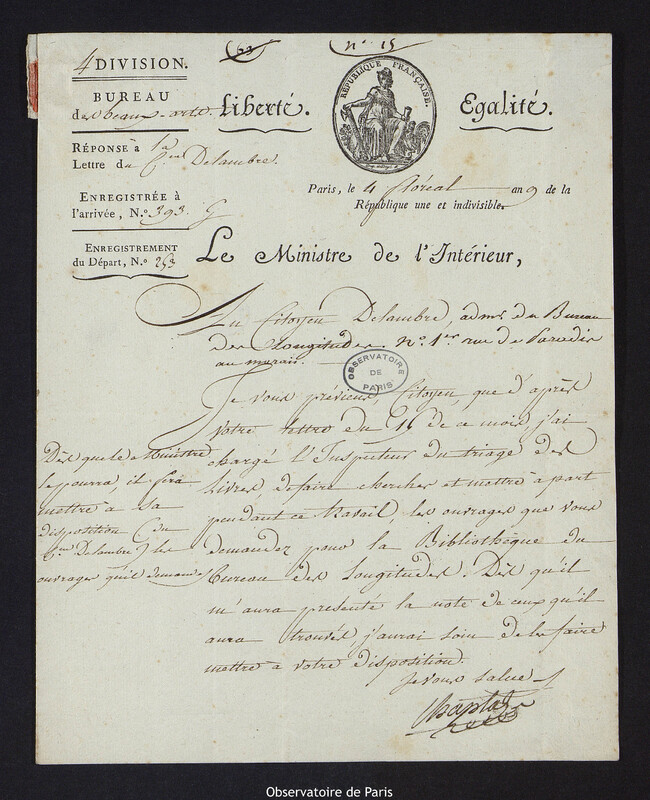 4 DIVISION.
BUREAU
des beaux-arts
RÉPONSE à la
Lettre du Cen Delambre.
ENREGISTRÉE à
l'arrivée, N.o 393. G
ENREGISTREMENT
du Départ, N.o 253
63
n.o 15
Liberté.
RÉPUBLIQUE FRANÇAISE.
Egalité.
Paris, le 4 floréal an 9 de la
République une et indivisible.
Le Ministre de l'Intérieur,
Au Citoyen Delambre, adms du Bureau
des Longitudes. n.o 1er rue de Paradis
au marais.
OBSERVATOIRE
DE
PARIS
Je vous préviens, Citoyen, que d'après
votre lettre du 19 de ce mois, j'ai
chargé l'Inspecteur du triage des
livres de faire chercher et mettre à part
pendant ce travail, les ouvrages que vous
demandez pour la Bibliothèque du
Bureau des Longitudes. Dès qu'il
m'aura présenté la note de ceux qu'il
aura trouvés, j'aurai soin de les faire
mettre à votre disposition.
Je vous salue
Chaptal
Dès que le Ministre
le pourra, il fera
mettre à sa
disposition (du
Cen Delambre) les
ouvrages qu'il demande
Observatoire de Paris